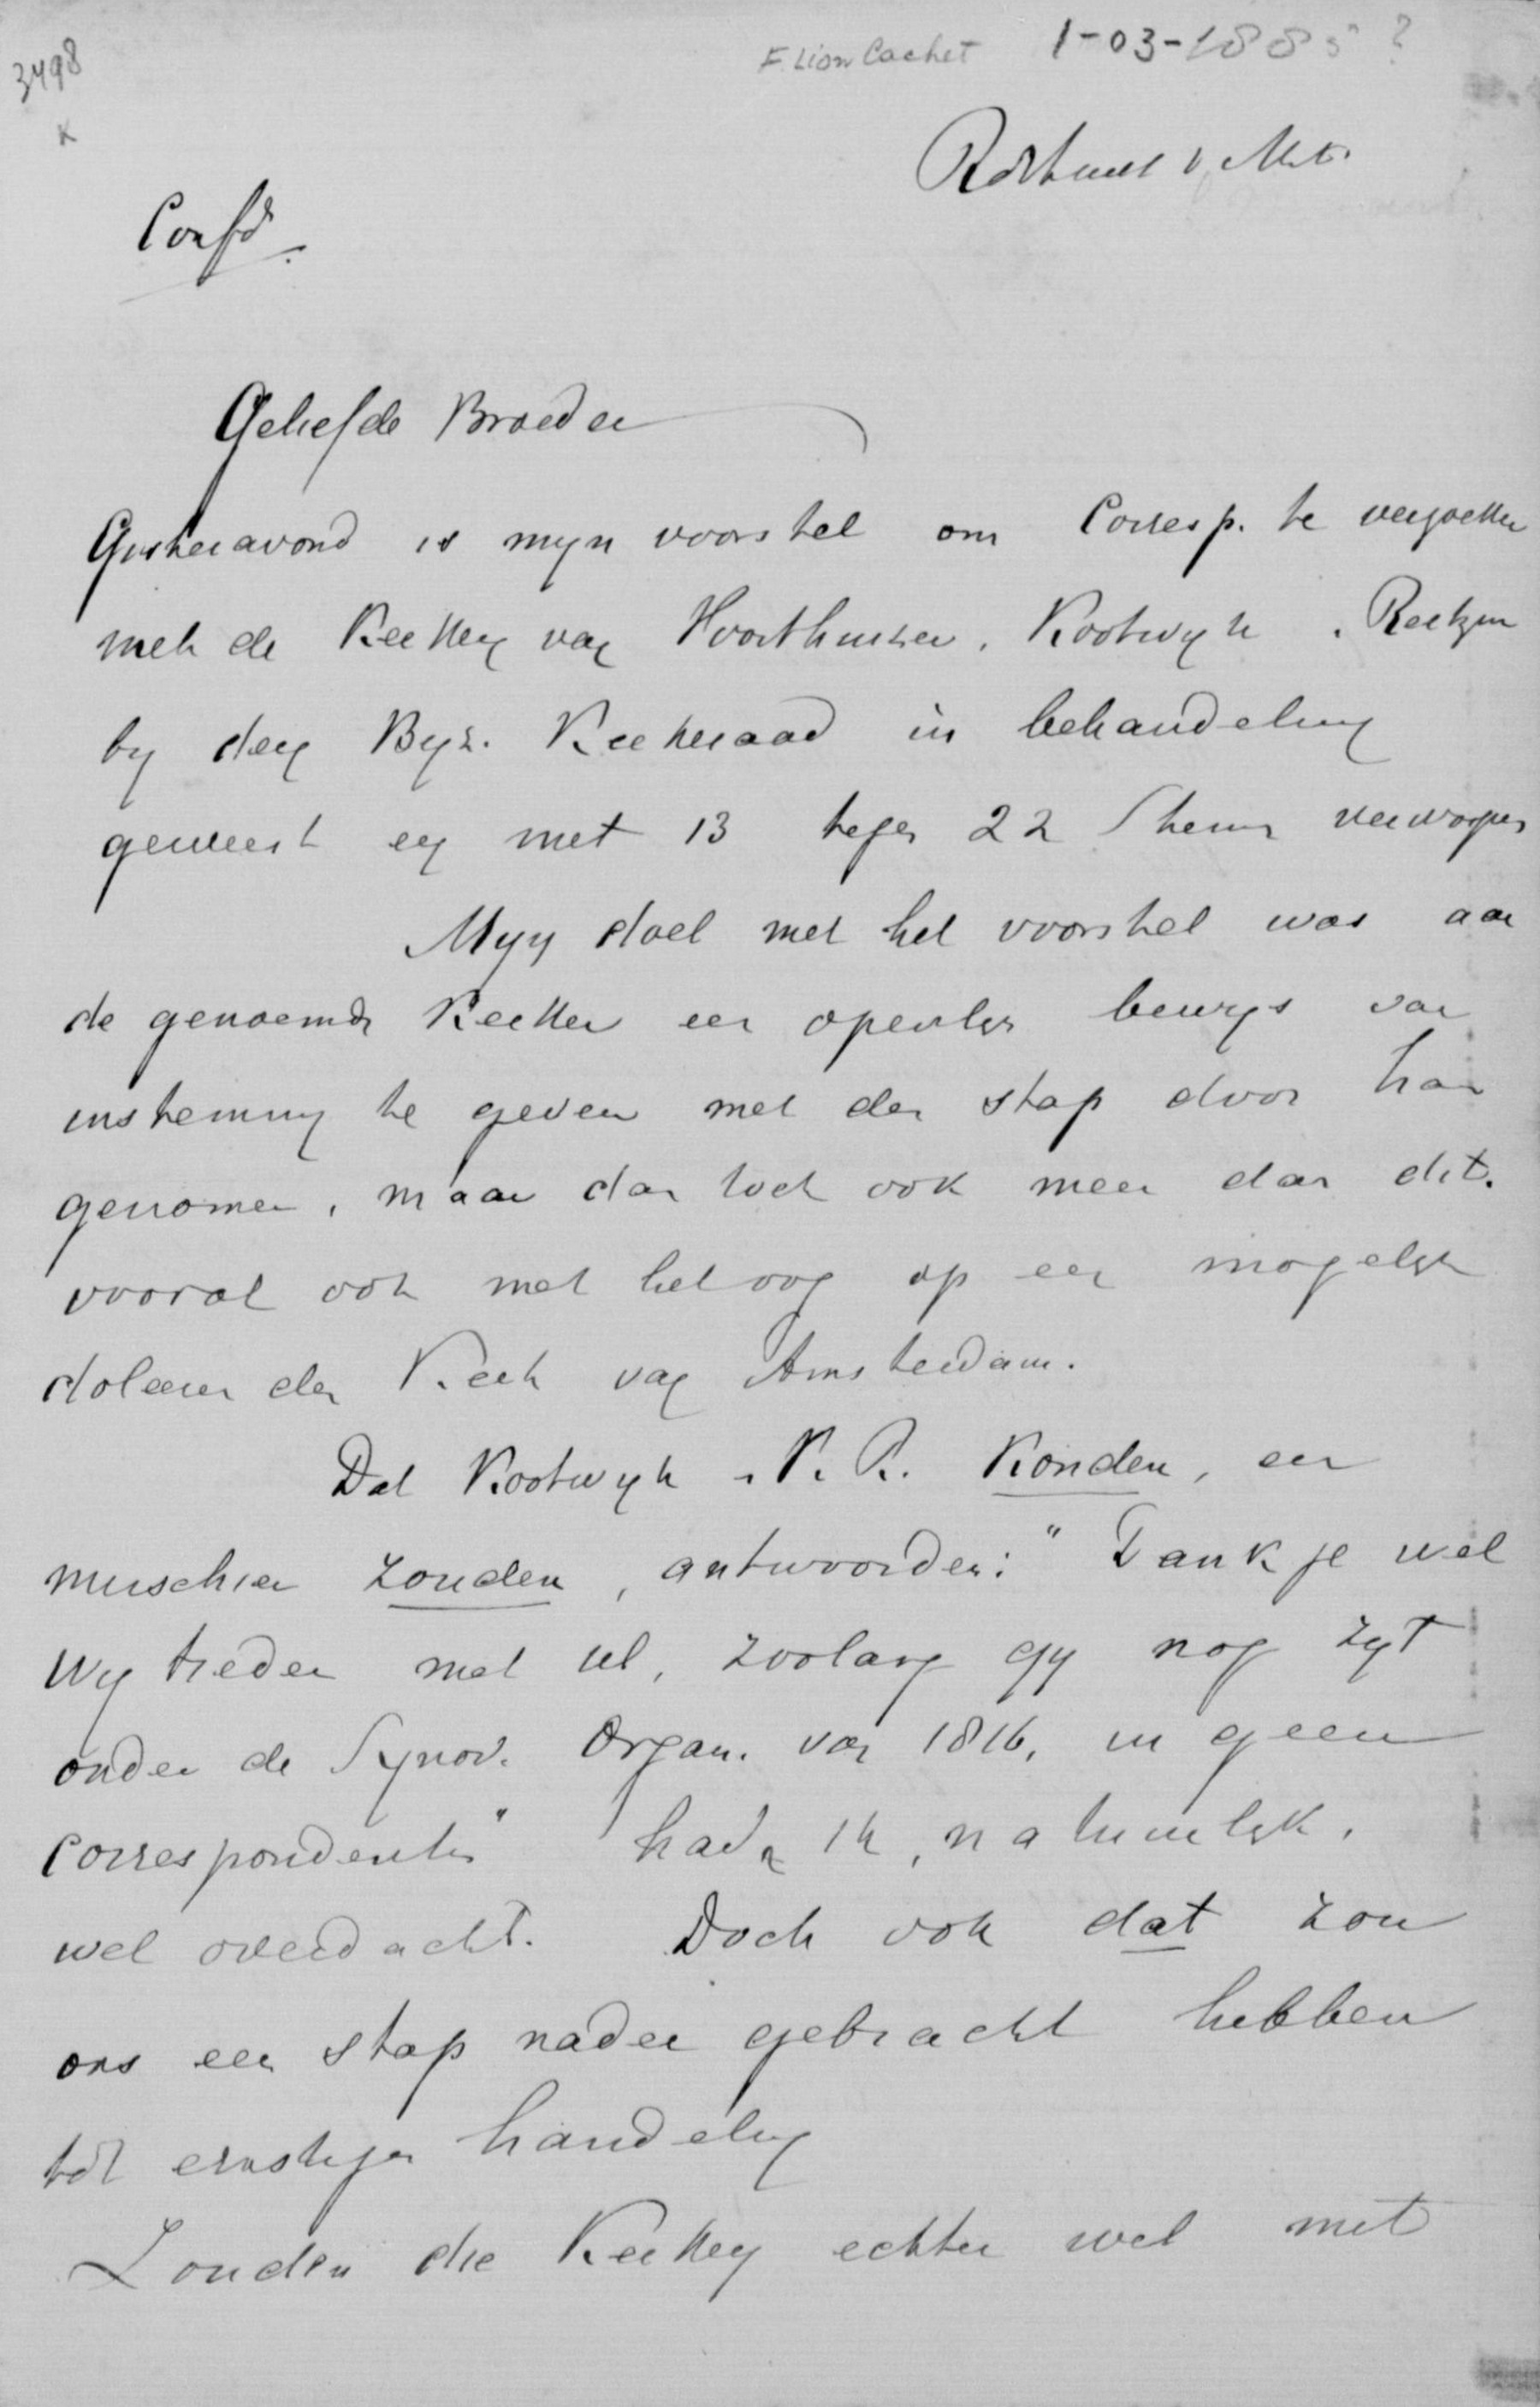 3498
K
F Lion Cachet 1-03-1885?
Rotterdam 1 Mrt.
Confd.
Geliefde Broeder
Gisteravond is mijn voorstel om Corresp. te
met de Kerken van Voorthuizen, Kootwijk, Reitzum
bij den Bijz. Kerkeraad in behandeling
geweest en met 13 tegen 22 stemmen verworpen
Mijn doel met het voorstel was aan
de genoemde Kerken een openlijk bewijs van
instemming te geven met den stap door haar
genomen, maar dan toch ook meer dan dit.
vooral ook met het oog op een mogelijk
doleeren der Kerk van Amsterdam.
Dat Kootwijk, V. R. konden, en
misschien zouden, antwoorden: "Dank je wel
wij treden met ul, zoolang gij nog zijt
onder de Synod. Organ. van 1816, in geen
correspondentie" had ik, natuurlijk,
wel overdacht. Doch ook dat zou
ons een stap nader gebracht hebben
tot ernstiger handeling
Zouden die Kerken echter wel met